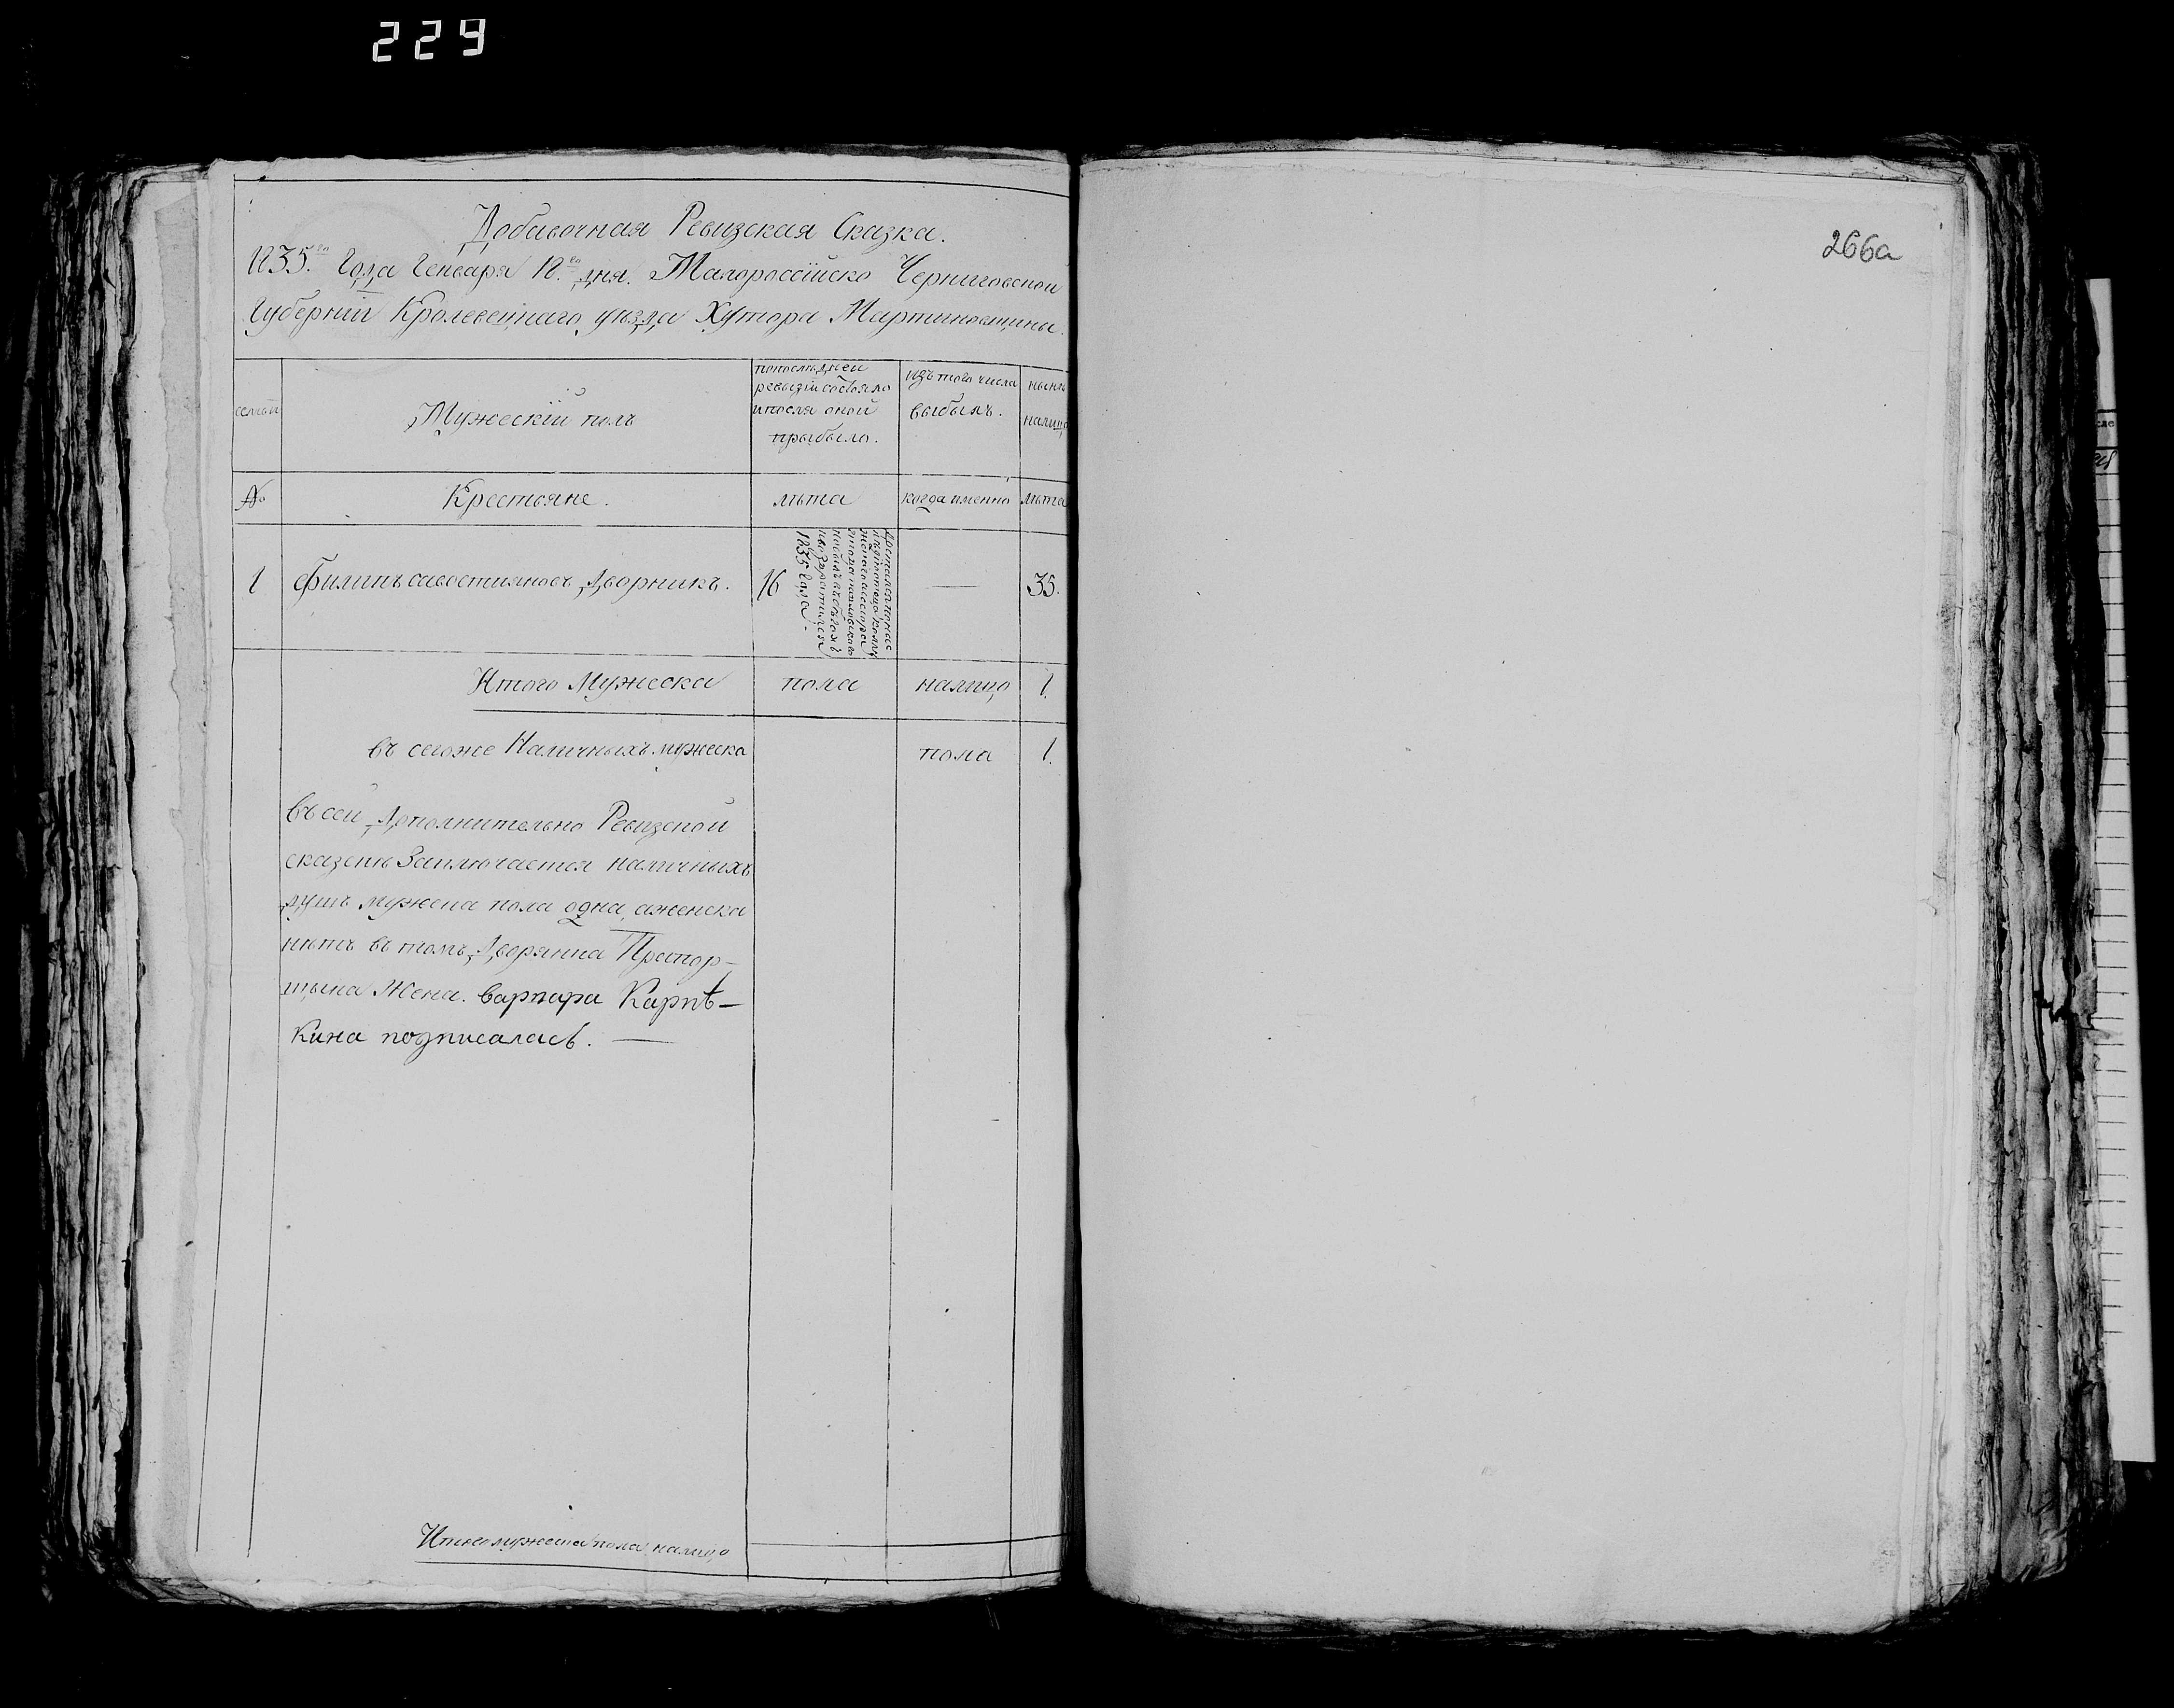 229
266а
Добавочная Ревизская Сказка.
1835.го Года Генваря 12.го дня. Малороссійско Черниговской
Губерніи Кролевецкаго уѣзда Хутора Мартиновщины.
семьи
Мужескій полъ
попослѣдней
ревизіи состояло
ипосля оной
прыбыло.
Изътого числа
выбылъ.
нынѣ
налицо
№
Крестьяне.
лѣта
когда именно
лѣта
1 Филипъ савостияновъ Дворникъ. 16 — 35.
1835 Года.
Итого Мужеска пола налицо 1.
въ сегоже Наличныхъ мужеска пола 1.
Въ сей Дополнительно Ревизской
сказски Заключается наличныхъ
душъ мужеска пола одна, аженска
нѣтъ въ томъ Дворянка Прапор-
щыка Жена. варвара Карпѣ-
кина подписалась. —
Итого мужеска пола налицо